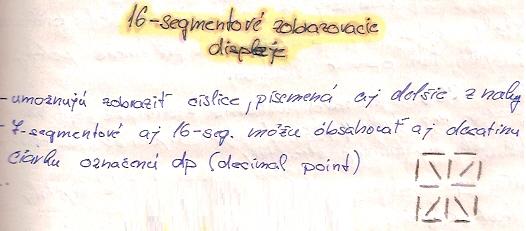 16-segmentové zobrazovacie
displeje
- umožnujú zobraziť cislice, písmená aj delšie znaky
- 7-segmentové aj 16-seg. môžu obsahovať aj decatinu
ciarku označenú dp (decimal point)